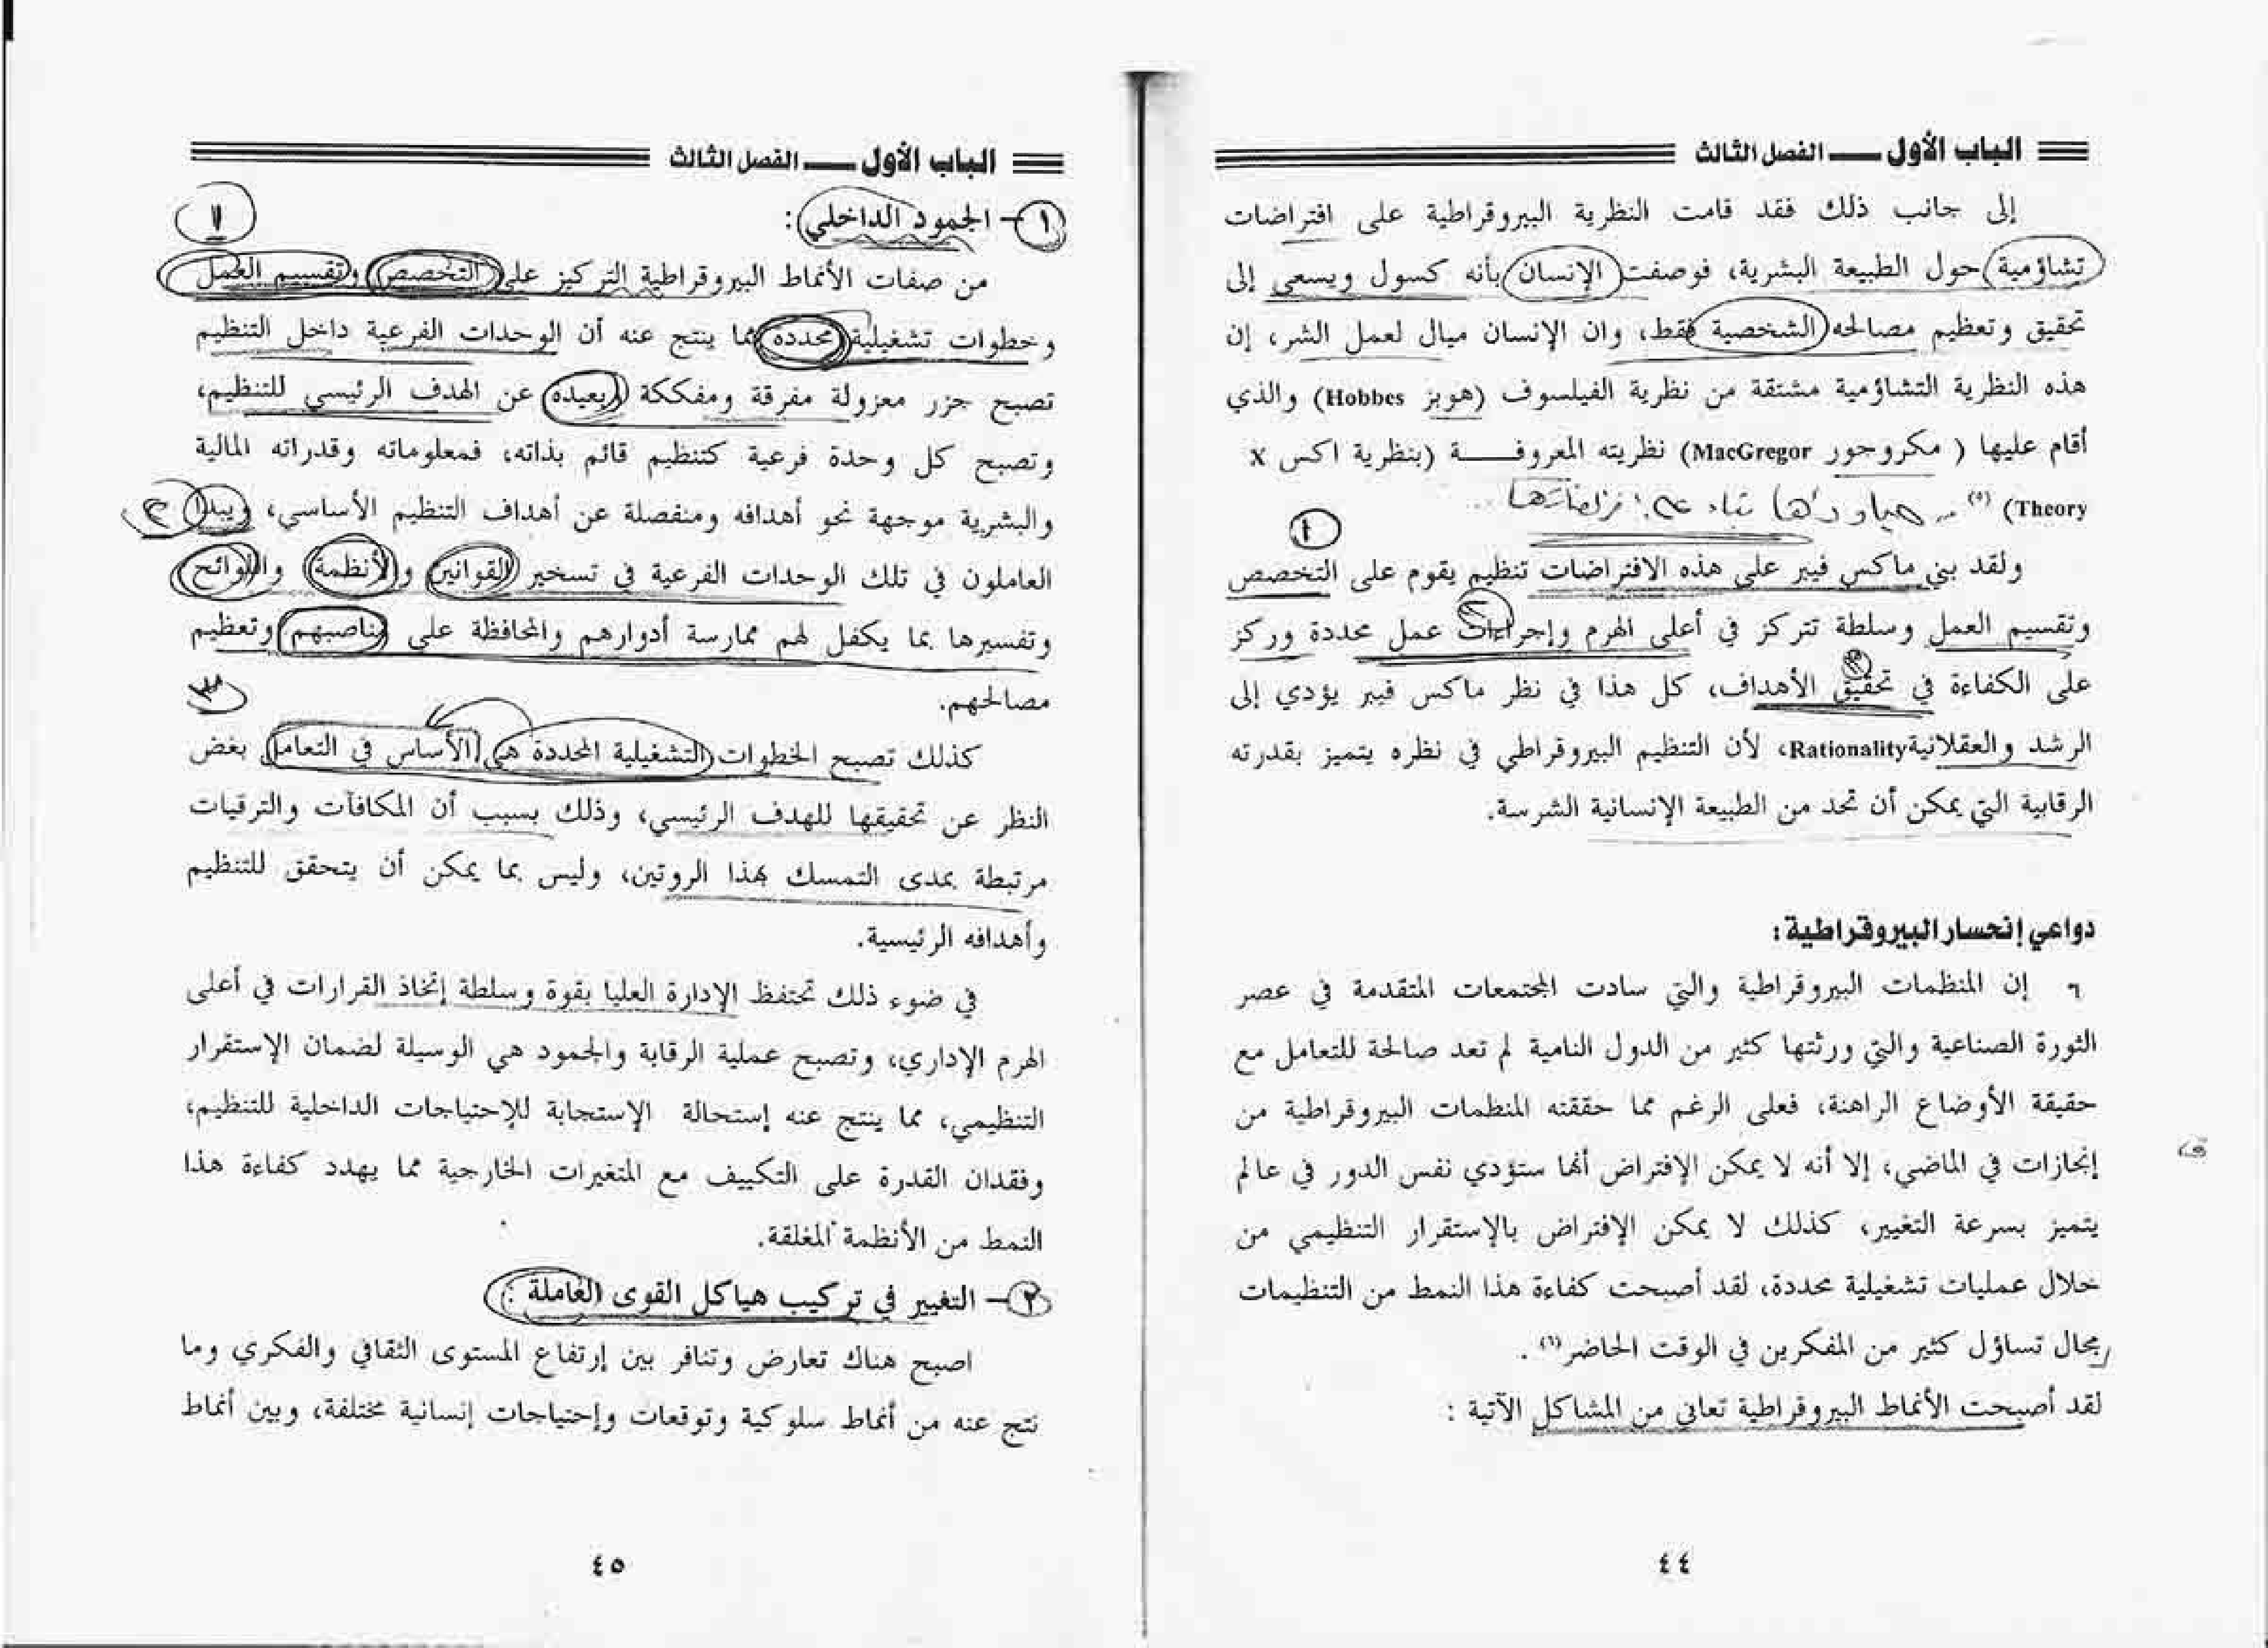 الباب الأول — الفصل الثالث
إلى جانب ذلك فقد قامت النظرية البيروقراطية على افتراضات
تشاؤمية حول الطبيعة البشرية، فوصفت الإنسان بأنه كسول ويسعى إلى
تحقيق وتعظيم مصالحه الشخصية فقط، وان الإنسان ميال لعمل الشر، إن
هذه النظرية التشاؤمية مشتقة من نظرية الفيلسوف (هوبز Hobbes) والذي
أقام عليها ( مكروجور MacGregor) نظريته المعروفـــــة (بنظرية اكس X
Theory) (٥)
ولقد بني ماكس فيبر على هذه الافتراضات تنظيم يقوم على التخصص
وتقسيم العمل وسلطة تتركز في أعلى الهرم وإجراءات عمل محددة وركز
على الكفاءة في تحقيق الأهداف، كل هذا في نظر ماكس فيبر يؤدي إلى
الرشد والعقلانية Rationality، لأن التنظيم البيروقراطي في نظره يتميز بقدرته
الرقابية التي يمكن أن تحد من الطبيعة الإنسانية الشرسة.
دواعي إنحسار البيروقراطية:
إن المنظمات البيروقراطية والتي سادت المجتمعات المتقدمة في عصر
الثورة الصناعية والتي ورثتها كثير من الدول النامية لم تعد صالحة للتعامل مع
حقيقة الأوضاع الراهنة، فعلى الرغم مما حققته المنظمات البيروقراطية من
إنجازات في الماضي، إلا أنه لا يمكن الإفتراض أنها ستؤدي نفس الدور في عالم
يتميز بسرعة التغيير، كذلك لا يمكن الإفتراض بالإستقرار التنظيمي من
خلال عمليات تشغيلية محددة، لقد أصبحت كفاءة هذا النمط من التنظيمات
مجال تساؤل كثير من المفكرين في الوقت الحاضر(٦) .
لقد أصبحت الأنماط البيروقراطية تعاني من المشاكل الآتية :
٤٤
الباب الأول — الفصل الثالث
١- الجمود الداخلي:
من صفات الأنماط البيروقراطية التركيز على التخصص وتقسيم العمل
وخطوات تشغيلية محدده مما ينتج عنه أن الوحدات الفرعية داخل التنظيم
تصبح جزر معزولة مفرقة ومفككة بعيده عن الهدف الرئيسي للتنظيم،
وتصبح كل وحدة فرعية كتنظيم قائم بذاته، فمعلوماته وقدراته المالية
والبشرية موجهة نحو أهدافه ومنفصلة عن أهداف التنظيم الأساسي، ويبدا
العاملون في تلك الوحدات الفرعية في تسخير القوانين والأنظمة واللوائح
وتفسيرها بما يكفل لهم ممارسة أدوارهم والمحافظة على مناصبهم وتعظيم
مصالحهم.
٣
كذلك تصبح الخطوات التشغيلية المحددة هي الأساس في التعامل بغض
النظر عن تحقيقها للهدف الرئيسي، وذلك بسبب أن المكافآت والترقيات
مرتبطة بمدى التمسك بهذا الروتين، وليس بما يمكن أن يتحقق للتنظيم
وأهدافه الرئيسية.
في ضوء ذلك تحتفظ الإدارة العليا بقوة وسلطة إتخاذ القرارات في أعلى
الهرم الإداري، وتصبح عملية الرقابة والجمود هي الوسيلة لضمان الإستقرار
التنظيمي، مما ينتج عنه إستحالة الإستجابة للإحتياجات الداخلية للتنظيم،
وفقدان القدرة على التكييف مع المتغيرات الخارجية مما يهدد كفاءة هذا
النمط من الأنظمة المغلقة.
٢- التغيير في تركيب هياكل القوى العاملة :
اصبح هناك تعارض وتنافر بين إرتفاع المستوى الثقافي والفكري وما
نتج عنه من أنماط سلوكية وتوقعات وإحتياجات إنسانية مختلفة، وبين أنماط
٤٥